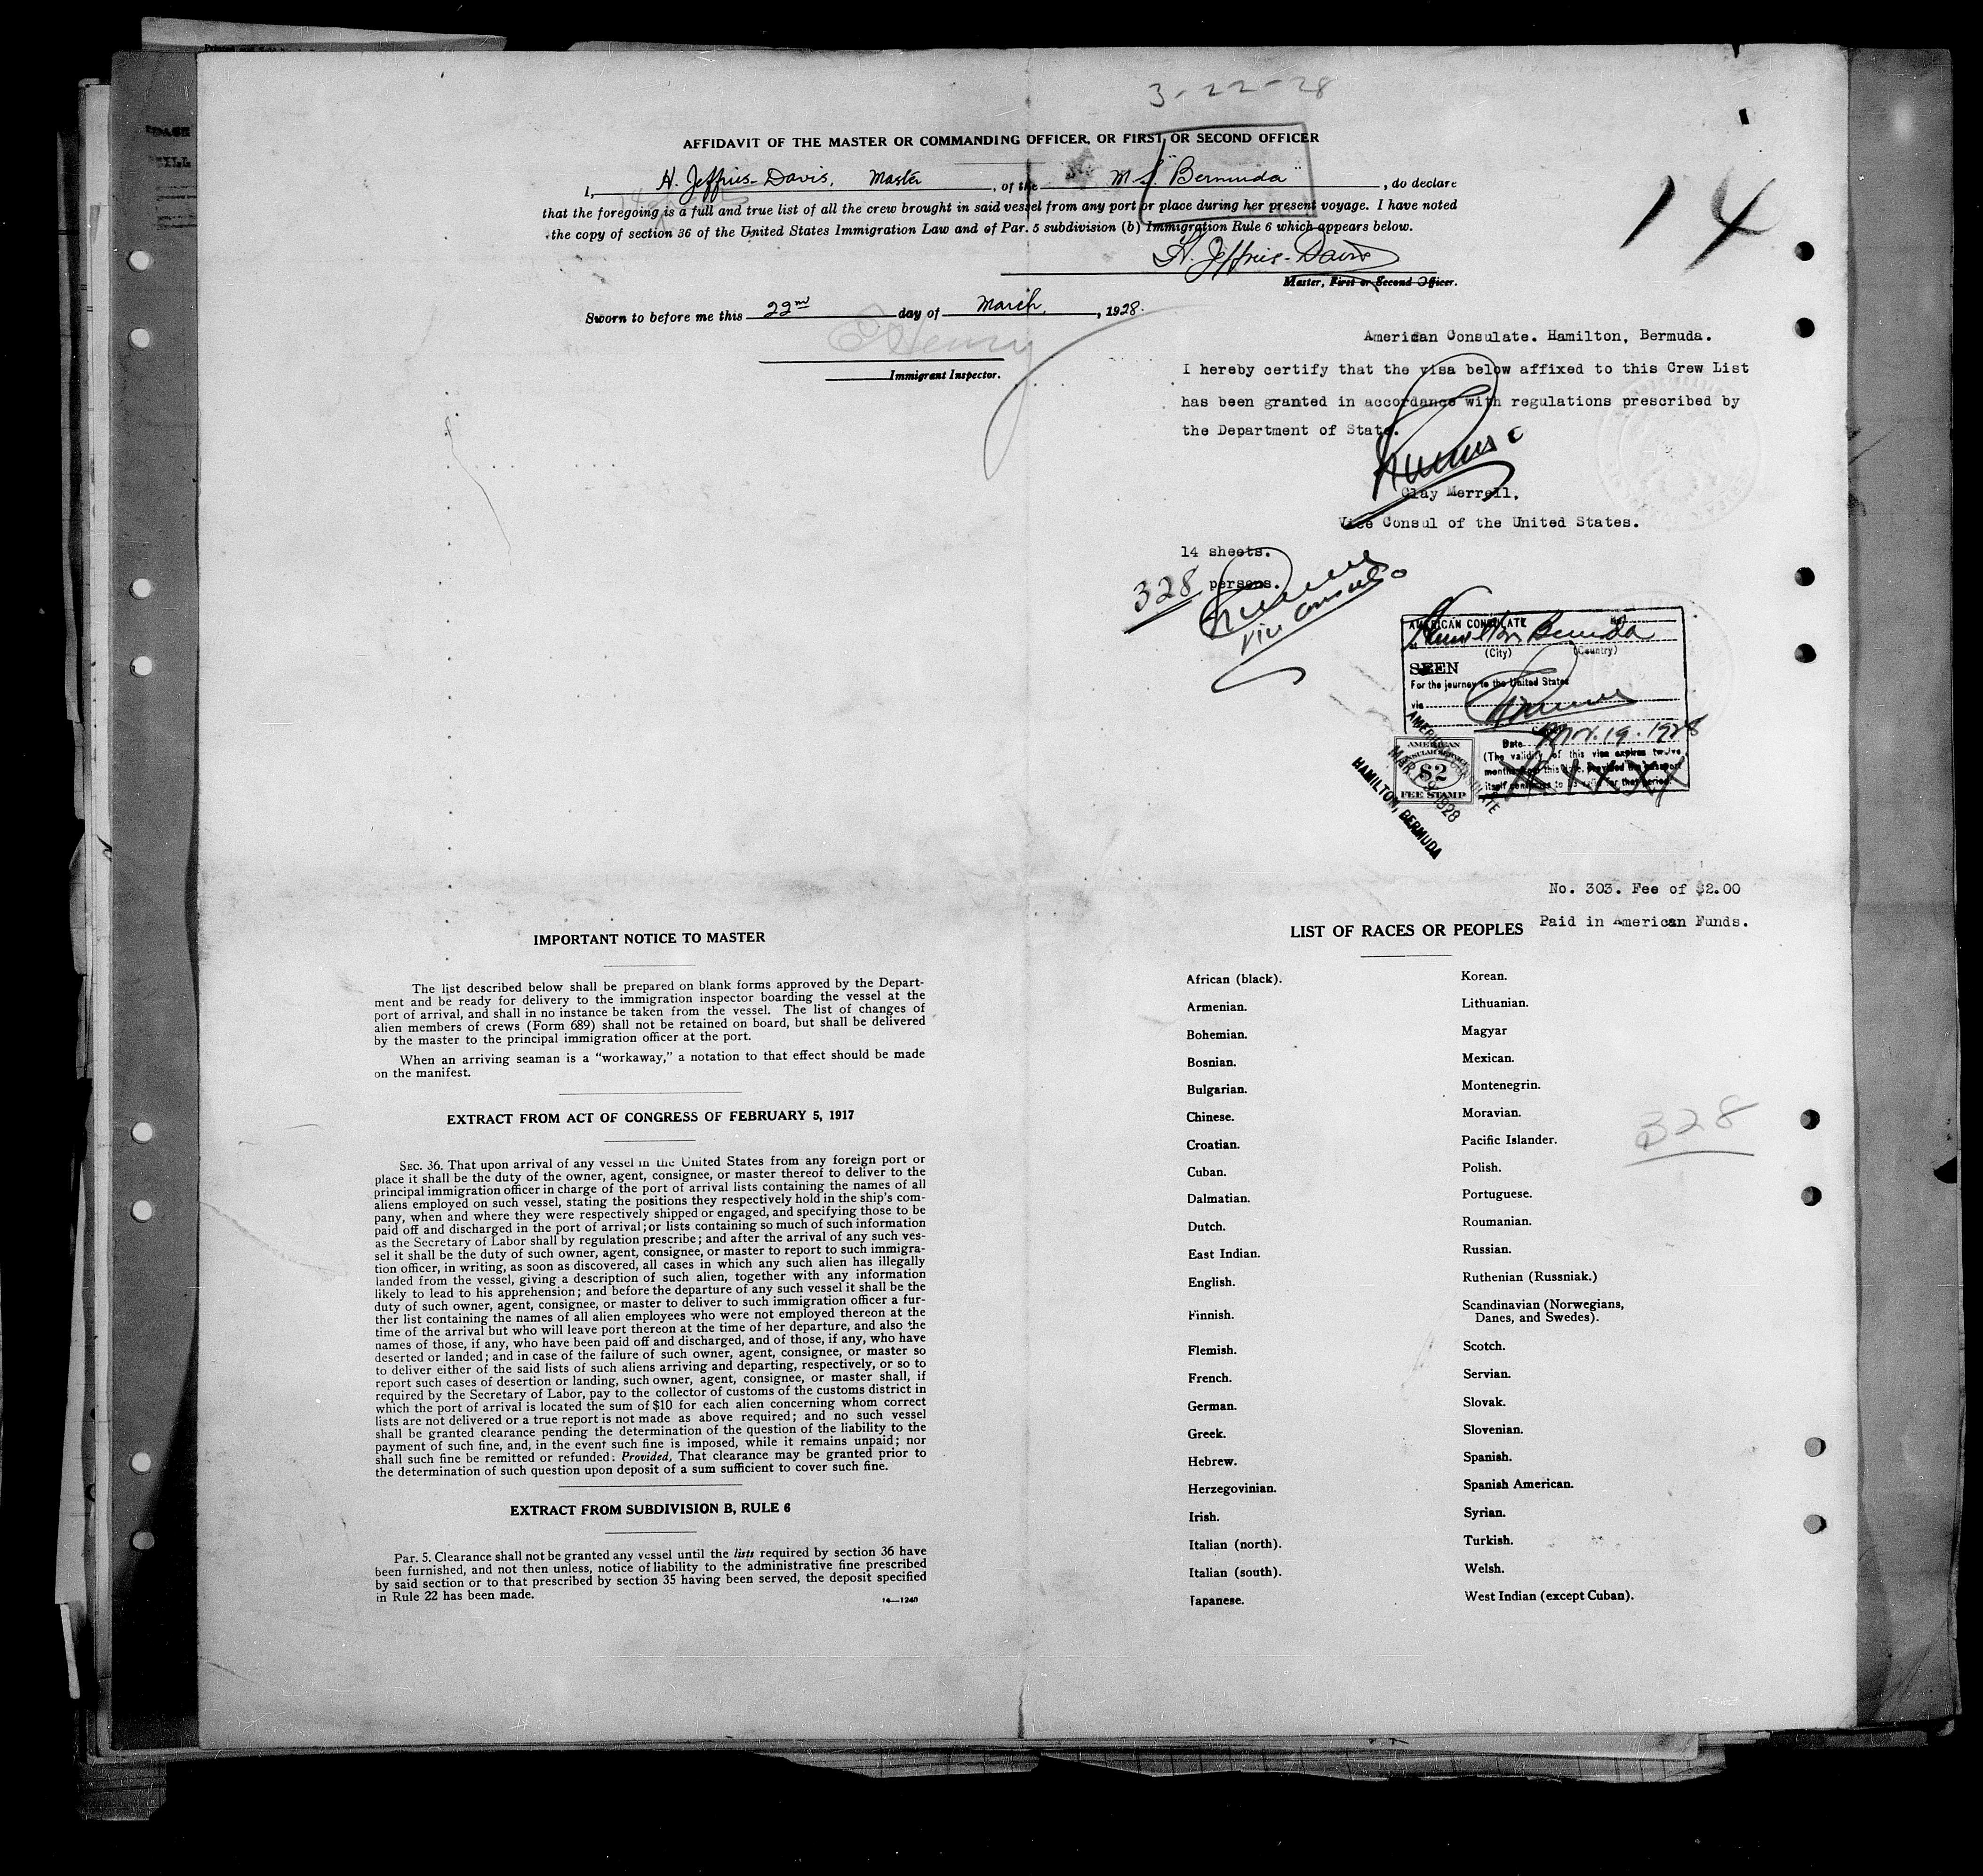 3-22-28
AFFIDAVIT OF THE MASTER OR COMMANDING OFFICER, OR FIRST OR SECOND OFFICER
I, H. Jeffries-Davis, Master, of the M.S. "Bermuda", do declare
that the foregoing is a full and true list of all the crew brought in said vessel from any port or place during her present voyage. I have noted
the copy of section 36 of the United States Immigration Law and of Par. 5 subdivision (b) Immigration Rule 6 which appears below.
14
H. Jeffries-Davis
Master, First or Second Officer.
Sworn to before me this 22nd day of March, 1928.
Henry
Immigrant Inspector.
American Consulate. Hamilton, Bermuda.
I hereby certify that the visa below affixed to this Crew List
has been granted in accordance with regulations prescribed by
the Department of State.
Clay Merrell,
Vice Consul of the United States.
14 sheets.
328 persons.
Vice Consul
AMERICAN CONSULATE
at Hamilton Bermuda
(City) (Country)
SEEN
For the journey to the United States
via
Date Mar. 19. 1928
(The validity of this visa expires twelve
months from this date, Provided the passport
itself continues to be valid for that period.
AMERICAN
CONSULAR SERVICE
$2
FEE STAMP
AMERICAN CONSULATE
MAR 19 1928
HAMILTON, BERMUDA
No. 303. Fee of $2.00
Paid in American Funds.
IMPORTANT NOTICE TO MASTER
The list described below shall be prepared on blank forms approved by the Depart-
ment and be ready for delivery to the immigration inspector boarding the vessel at the
port of arrival, and shall in no instance be taken from the vessel. The list of changes of
alien members of crews (Form 689) shall not be retained on board, but shall be delivered
by the master to the principal immigration officer at the port.
When an arriving seaman is a "workaway," a notation to that effect should be made
on the manifest.
EXTRACT FROM ACT OF CONGRESS OF FEBRUARY 5, 1917
SEC. 36. That upon arrival of any vessel in the United States from any foreign port or
place it shall be the duty of the owner, agent, consignee, or master thereof to deliver to the
principal immigration officer in charge of the port of arrival lists containing the names of all
aliens employed on such vessel, stating the positions they respectively hold in the ship's com-
pany, when and where they were respectively shipped or engaged, and specifying those to be
paid off and discharged in the port of arrival; or lists containing so much of such information
as the Secretary of Labor shall by regulation prescribe; and after the arrival of any such ves-
sel it shall be the duty of such owner, agent, consignee, or master to report to such immigra-
tion officer, in writing, as soon as discovered, all cases in which any such alien has illegally
landed from the vessel, giving a description of such alien, together with any information
likely to lead to his apprehension; and before the departure of any such vessel it shall be the
duty of such owner, agent, consignee, or master to deliver to such immigration officer a fur-
ther list containing the names of all alien employees who were not employed thereon at the
time of the arrival but who will leave port thereon at the time of her departure, and also the
names of those, if any, who have been paid off and discharged, and of those, if any, who have
deserted or landed; and in case of the failure of such owner, agent, consignee, or master so
to deliver either of the said lists of such aliens arriving and departing, respectively, or so to
report such cases of desertion or landing, such owner, agent, consignee, or master shall, if
required by the Secretary of Labor, pay to the collector of customs of the customs district in
which the port of arrival is located the sum of $10 for each alien concerning whom correct
lists are not delivered or a true report is not made as above required; and no such vessel
shall be granted clearance pending the determination of the question of the liability to the
payment of such fine, and, in the event such fine is imposed, while it remains unpaid; nor
shall such fine be remitted or refunded: Provided, That clearance may be granted prior to
the determination of such question upon deposit of a sum sufficient to cover such fine.
EXTRACT FROM SUBDIVISION B, RULE 6
Par. 5. Clearance shall not be granted any vessel until the lists required by section 36 have
been furnished, and not then unless, notice of liability to the administrative fine prescribed
by said section or to that prescribed by section 35 having been served, the deposit specified
in Rule 22 has been made.
14—1240
LIST OF RACES OR PEOPLES
African (black).
Armenian.
Bohemian.
Bosnian.
Bulgarian.
Chinese.
Croatian.
Cuban.
Dalmatian.
Dutch.
East Indian.
English.
Finnish.
Flemish.
French.
German.
Greek.
Hebrew.
Herzegovinian.
Irish.
Italian (north).
Italian (south).
Japanese.
Korean.
Lithuanian.
Magyar
Mexican.
Montenegrin.
Moravian.
Pacific Islander.
Polish.
Portuguese.
Roumanian.
Russian.
Ruthenian (Russniak.)
Scandinavian (Norwegians,
Danes, and Swedes).
Scotch.
Servian.
Slovak.
Slovenian.
Spanish.
Spanish American.
Syrian.
Turkish.
Welsh.
West Indian (except Cuban).
328